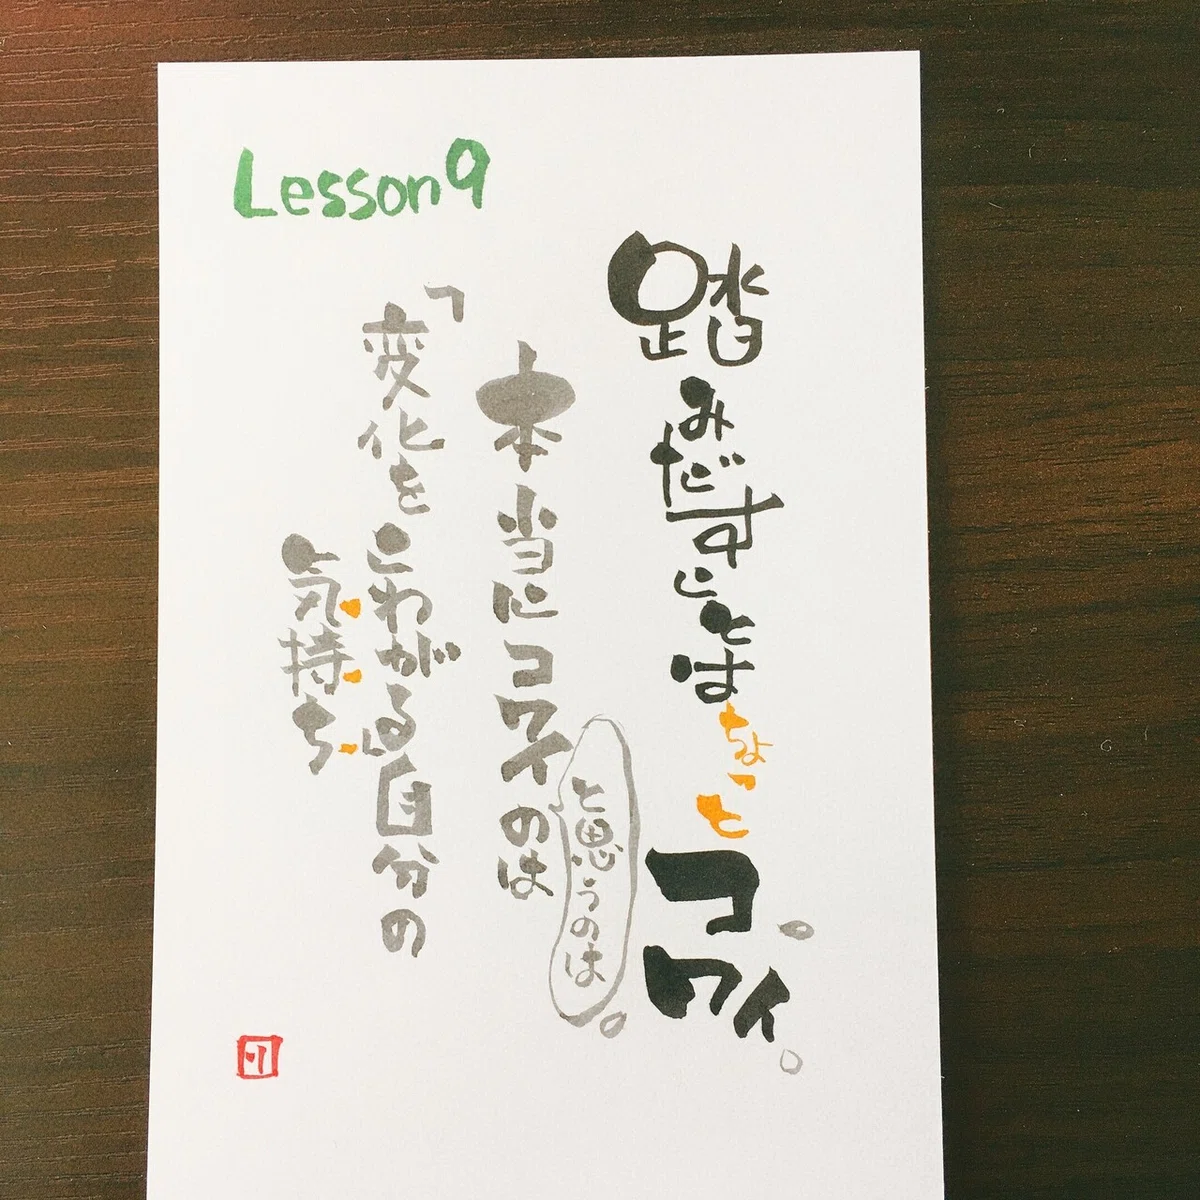 Lesson9
踏みだすことはちょっとコワイ。
と思うのは。
本当にコワイのは
「変化をこわがる自分の
気持ち